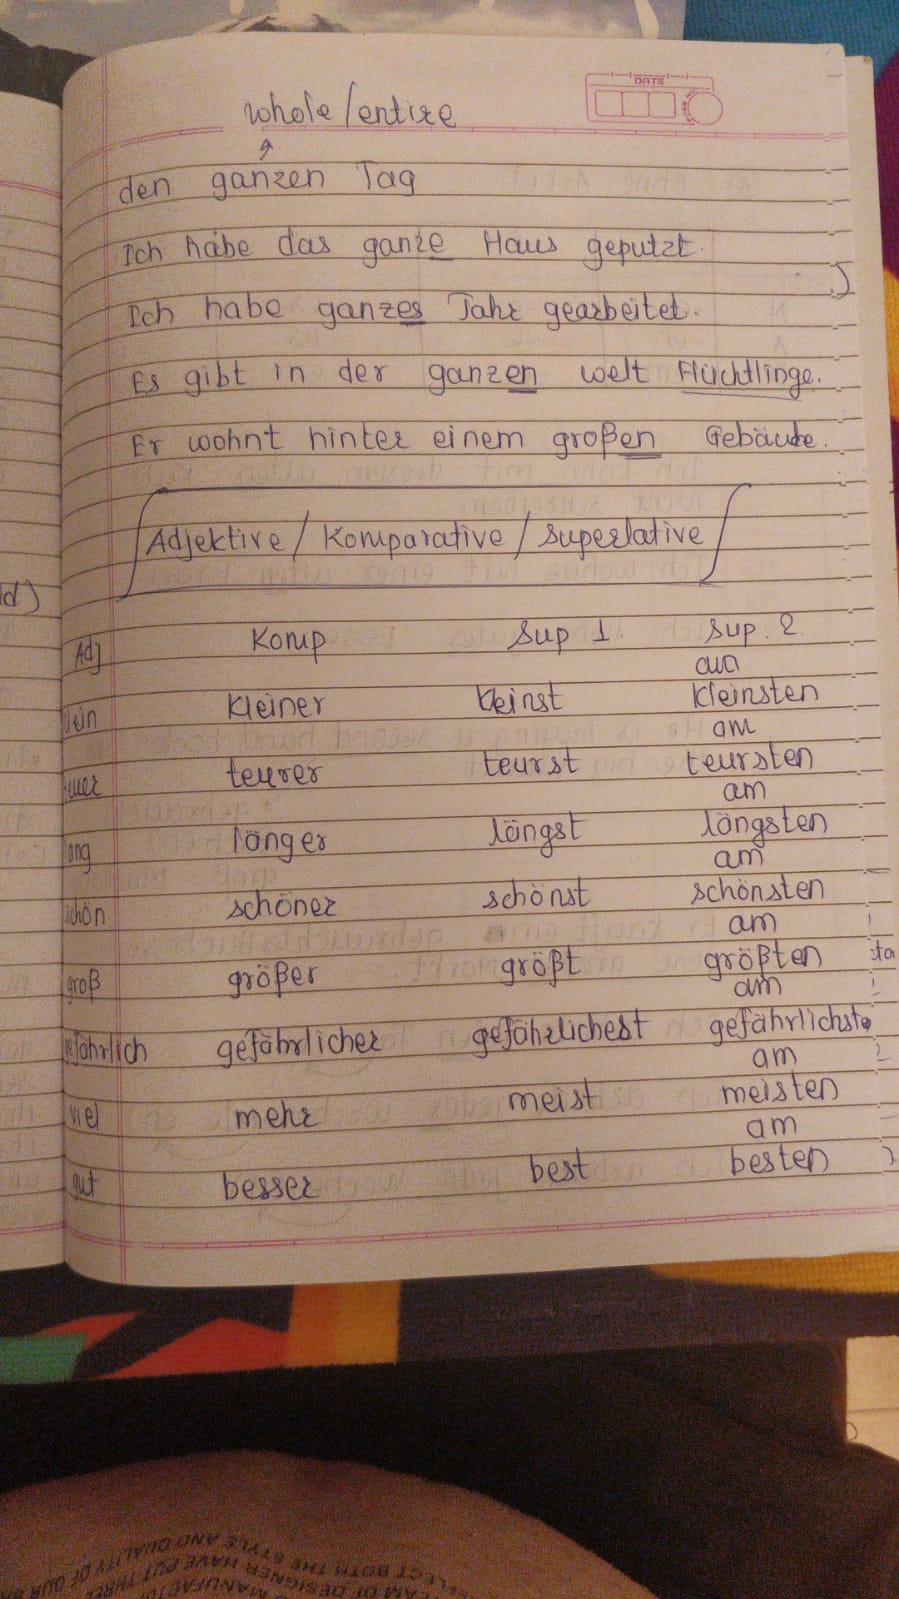 DATE
whole/entire
den ganzen Tag
Ich habe das ganze Haus geputzt.
Ich habe ganzes Jahr gearbeitet.
Es gibt in der ganzen welt Flüchtlinge.
Er wohnt hinter einem großen Gebäude.
Adjektive / Komparative / Superlative
Adj Komp Sup 1. Sup. 2
am
lein kleiner kleinst kleinsten
am
teuer teurer teurst teursten
am
lang länger längst längsten
am
schön schöner schönst schönsten
am
groß größer größt größten
am
gefährlich gefährlicher gefährlichest gefährlichste
am
viel mehr meist meisten
am
gut besser best besten